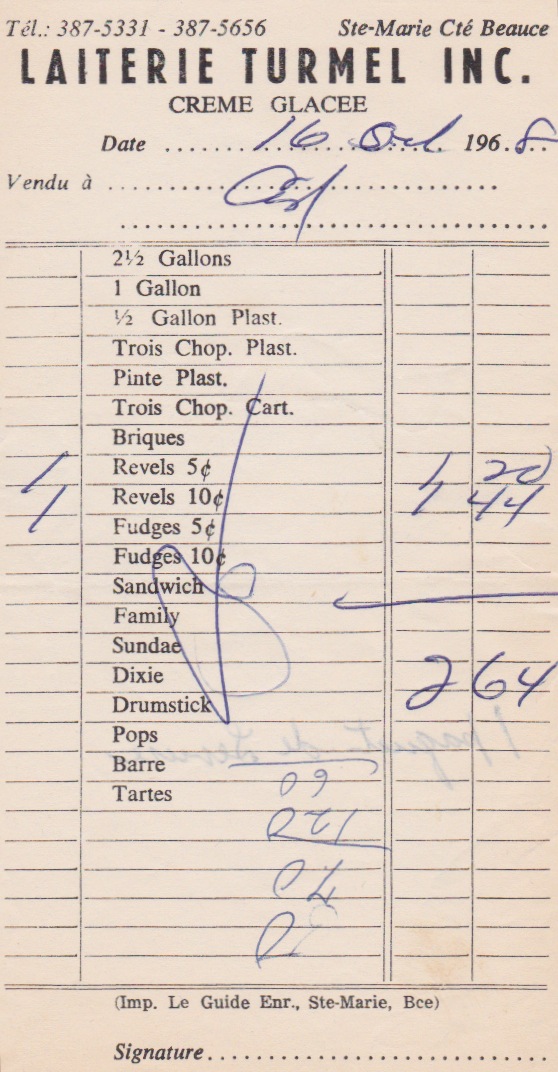 Tél.: 387-5331 - 387-5656 Ste-Marie Cté Beauce
LAITERIE TURMEL INC.
CREME GLACEE
Date 16 Oct 1968
Vendu à
2½ Gallons
1 Gallon
½ Gallon Plast.
Trois Chop. Plast.
Pinte Plast.
Trois Chop. Cart.
Briques
1 Revels 5¢ 1 20
1 Revels 10¢ 1 44
Fudges 5¢
Fudges 10¢
Sandwich
Family
Sundae
Dixie 2 64
Drumstick
Pops
Barre
Tartes
(Imp. Le Guide Enr., Ste-Marie, Bce)
Signature